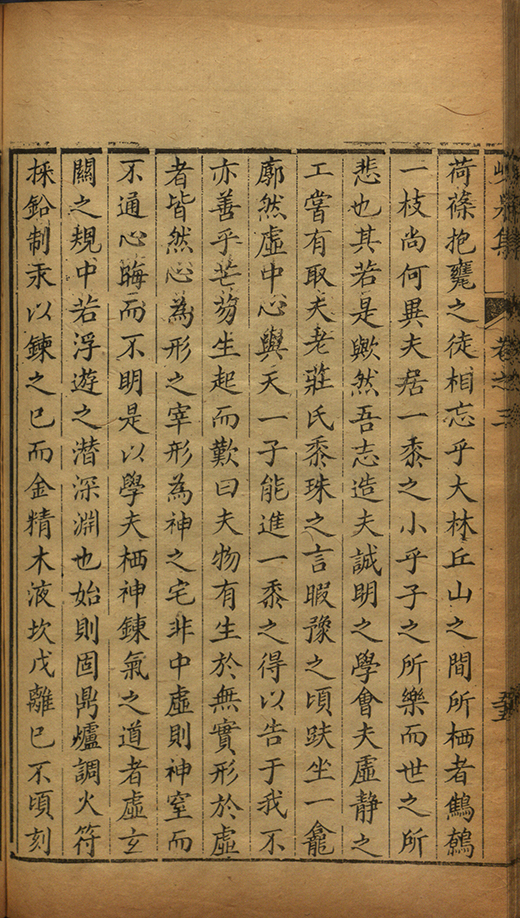 峴泉集 卷之三 五
荷蓧抱甕之徒相忘乎大林丘山之間所栖者鷦鷯
一枝尚何異夫居一黍之小乎子之所樂而世之所
悲也其若是歟然吾志造夫誠明之學會夫虛靜之
工嘗有取夫老莊氏黍珠之言暇豫之頃趺坐一龕
廓然虛中心與天一子能進一黍之得以告于我不
亦善乎芒芴生起而歎曰夫物有生於無實形於虛
者皆然心為形之宰形為神之宅非中虛則神窒而
不通心晦而不明是以學夫栖神鍊氣之道者虛玄
關之規中若浮遊之潛深淵也始則固鼎爐調火符
採鉛制汞以鍊之巳而金精木液坎戊離巳不頃刻